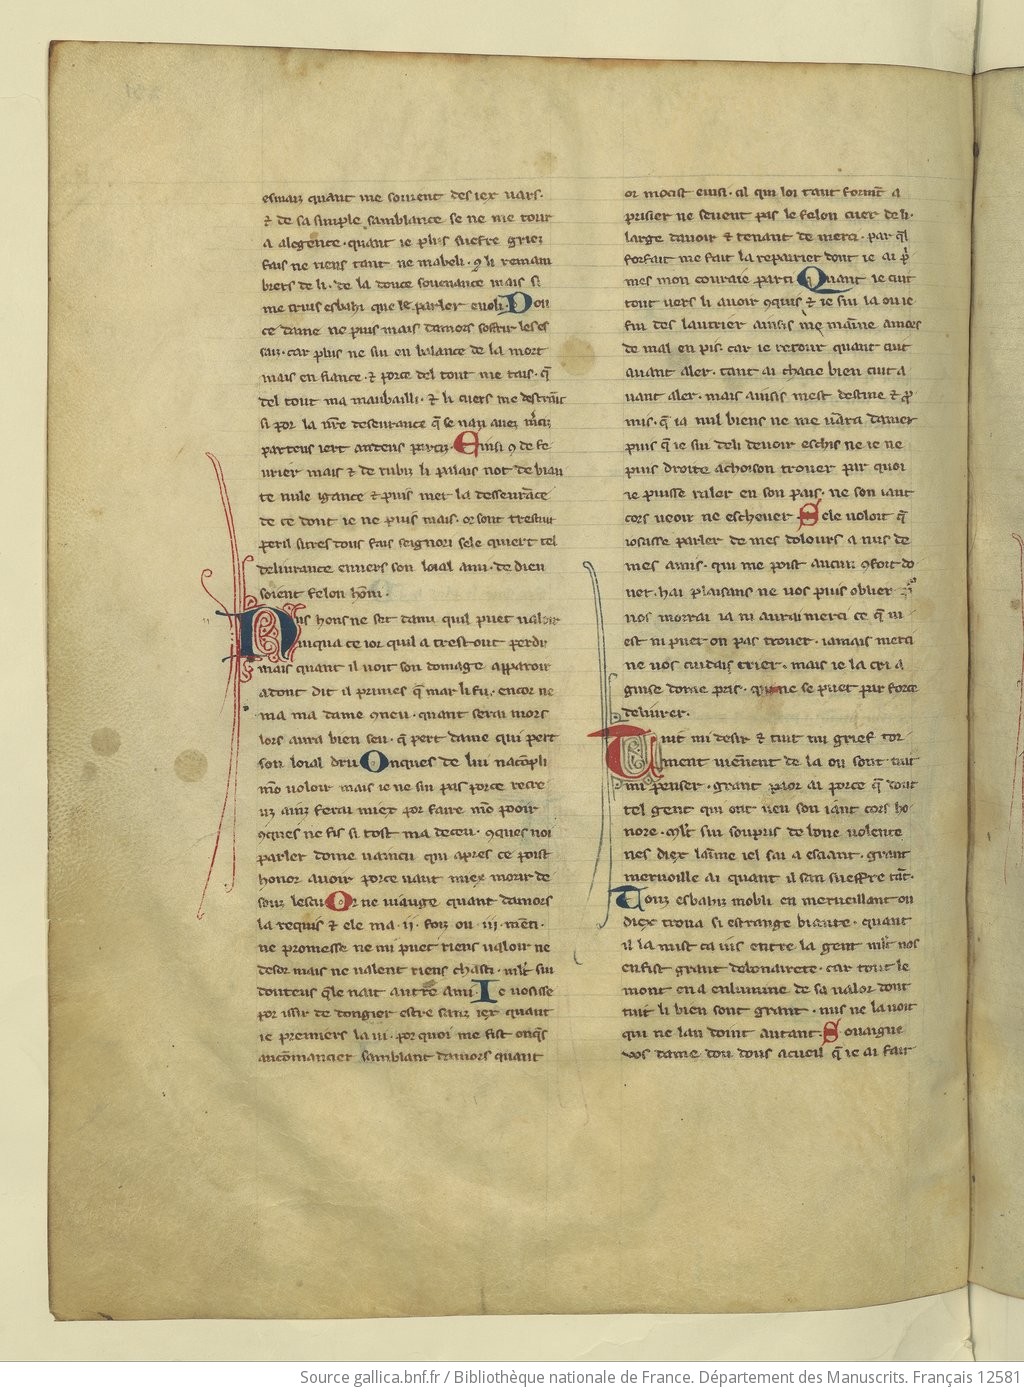 esmaiz quant me souient des iex uars·
⁊ de sa simple samblance se ne me tour
a alegence· quant ie plus sueffre griez
fais ne riens tant ne mabeli· ꝯ li remam
biers de li· de la douce souenance mais si
me truis esbahi que le parler enoli· Dou
ce dame ne puis mais damors soffrir les es
sais· car plus ne sui en balance de la mort
mais en fiance· ⁊ porce del tout me tais· q̄
del tout ma maubailli· ⁊ li cuers me destraīt
si por la
partens iert
Einsi ꝯ de fe
urier mais ⁊ de rubiz li palais not de biau
te nule ⁊ puis met la desseurāce
de ce dont ie ne puis mais· or sont trestuit
peril sires tous fais seignori sele quiert tel
deliurance enuers son loial ami· de dieu
soient felon hōni·
Nus hons ne set dami quil puet ualoir
iusqua ce ior quil a trestout perdu
mais quant il uoit son domage apparoir
adont dit il primes q̄ mar li fu· encor ne
ma ma dame ꝯneu· quant serai mors
lors aura bien seu· q̄ pert dame qui pert
son loial dru Onques de lui nacōpli
mō uoloir mais ie ne sui pas porce recre
uz ainz ferai miex por faire mō pooir
ꝯques ne fis si tost ma deceu· ꝯques noi
parler dome uaincu qui apres ce poist
honor auoir porce uaut miex morir de
souz lescu Or ne uiauge quant damors
la requis ⁊ ele ma ·ii· foiz ou ·iii· mēti·
ne promesse ne mi puet riens ualoir ne
desor mais ne ualent riens chasti· ml't sui
douteus q̄le nait autre ami· Ie uosisse
por issir de dongier estre sanz iex quant
ie premiers la ui· por quoi me fist onq̄s
ancōmancier samblant damors quant
or mocist einsi· cil qui loi tant formt̄ a
prisier ne seuent pas le felon cuer de li·
large dauoir ⁊ tenant de merci· par q̄l
forfait me fait la repairier dont ie ai p̄
mes mon couraie parti Quant ie cuit
tout uers li auoir ꝯquis ⁊ ie sui la ou ie
fui des lautrier ainsis me maīne amors
de mal en pis· car ie retour quant cuit
auant aler· tant ai chacie bien cuit a
uant aler· mais auisis mest destine ⁊ p
mis· q̄ ia nul biens ne me uāra damer
puis q̄ ie sui deli deuoir eschis ne ie ne
puis droite achoison trouer par quoi
ie puisse raler en son pais· ne son iant
cors ueoir ne escheuer Sele uoloit q̄
iosasse parler de mes dolours a nus de
mes amis· qui me poist aucun ꝯfort do
ner· hai plaisans ne uos puis oblier
nos morrai ia ni aurai merci ce q̄ ni
est ni puet on pas trouer· iamais merci
ne uos cuidais crier· mais ie la cri a
guise dome pris· quine se puet par force
deliurer·
Tuit mi desir ⁊ tuit mi grief tor
ment uiēnent de la ou sont tuit
mi penser· grant paor ai porce q̄ tout
tel gent qui ont ueu son iant cors ho
nore· ml't sui soupris de bone uolente
nes diex laime iel sai a esciant· grant
meruoille ai quant il san sueffre tāt·
Touz esbahiz mobli en merueillant ou
diex troua si estrange biaute· quant
il la mist ca ius entre la gent ml't nos
en fist grant debonairete· car tout le
mont en a enlumine de sa ualor dont
tuit li bien sont grant· nus ne la uoit
qui ne lan doint autant· Souaigne
vos dame dou dous acueil q̄ ie ai fait